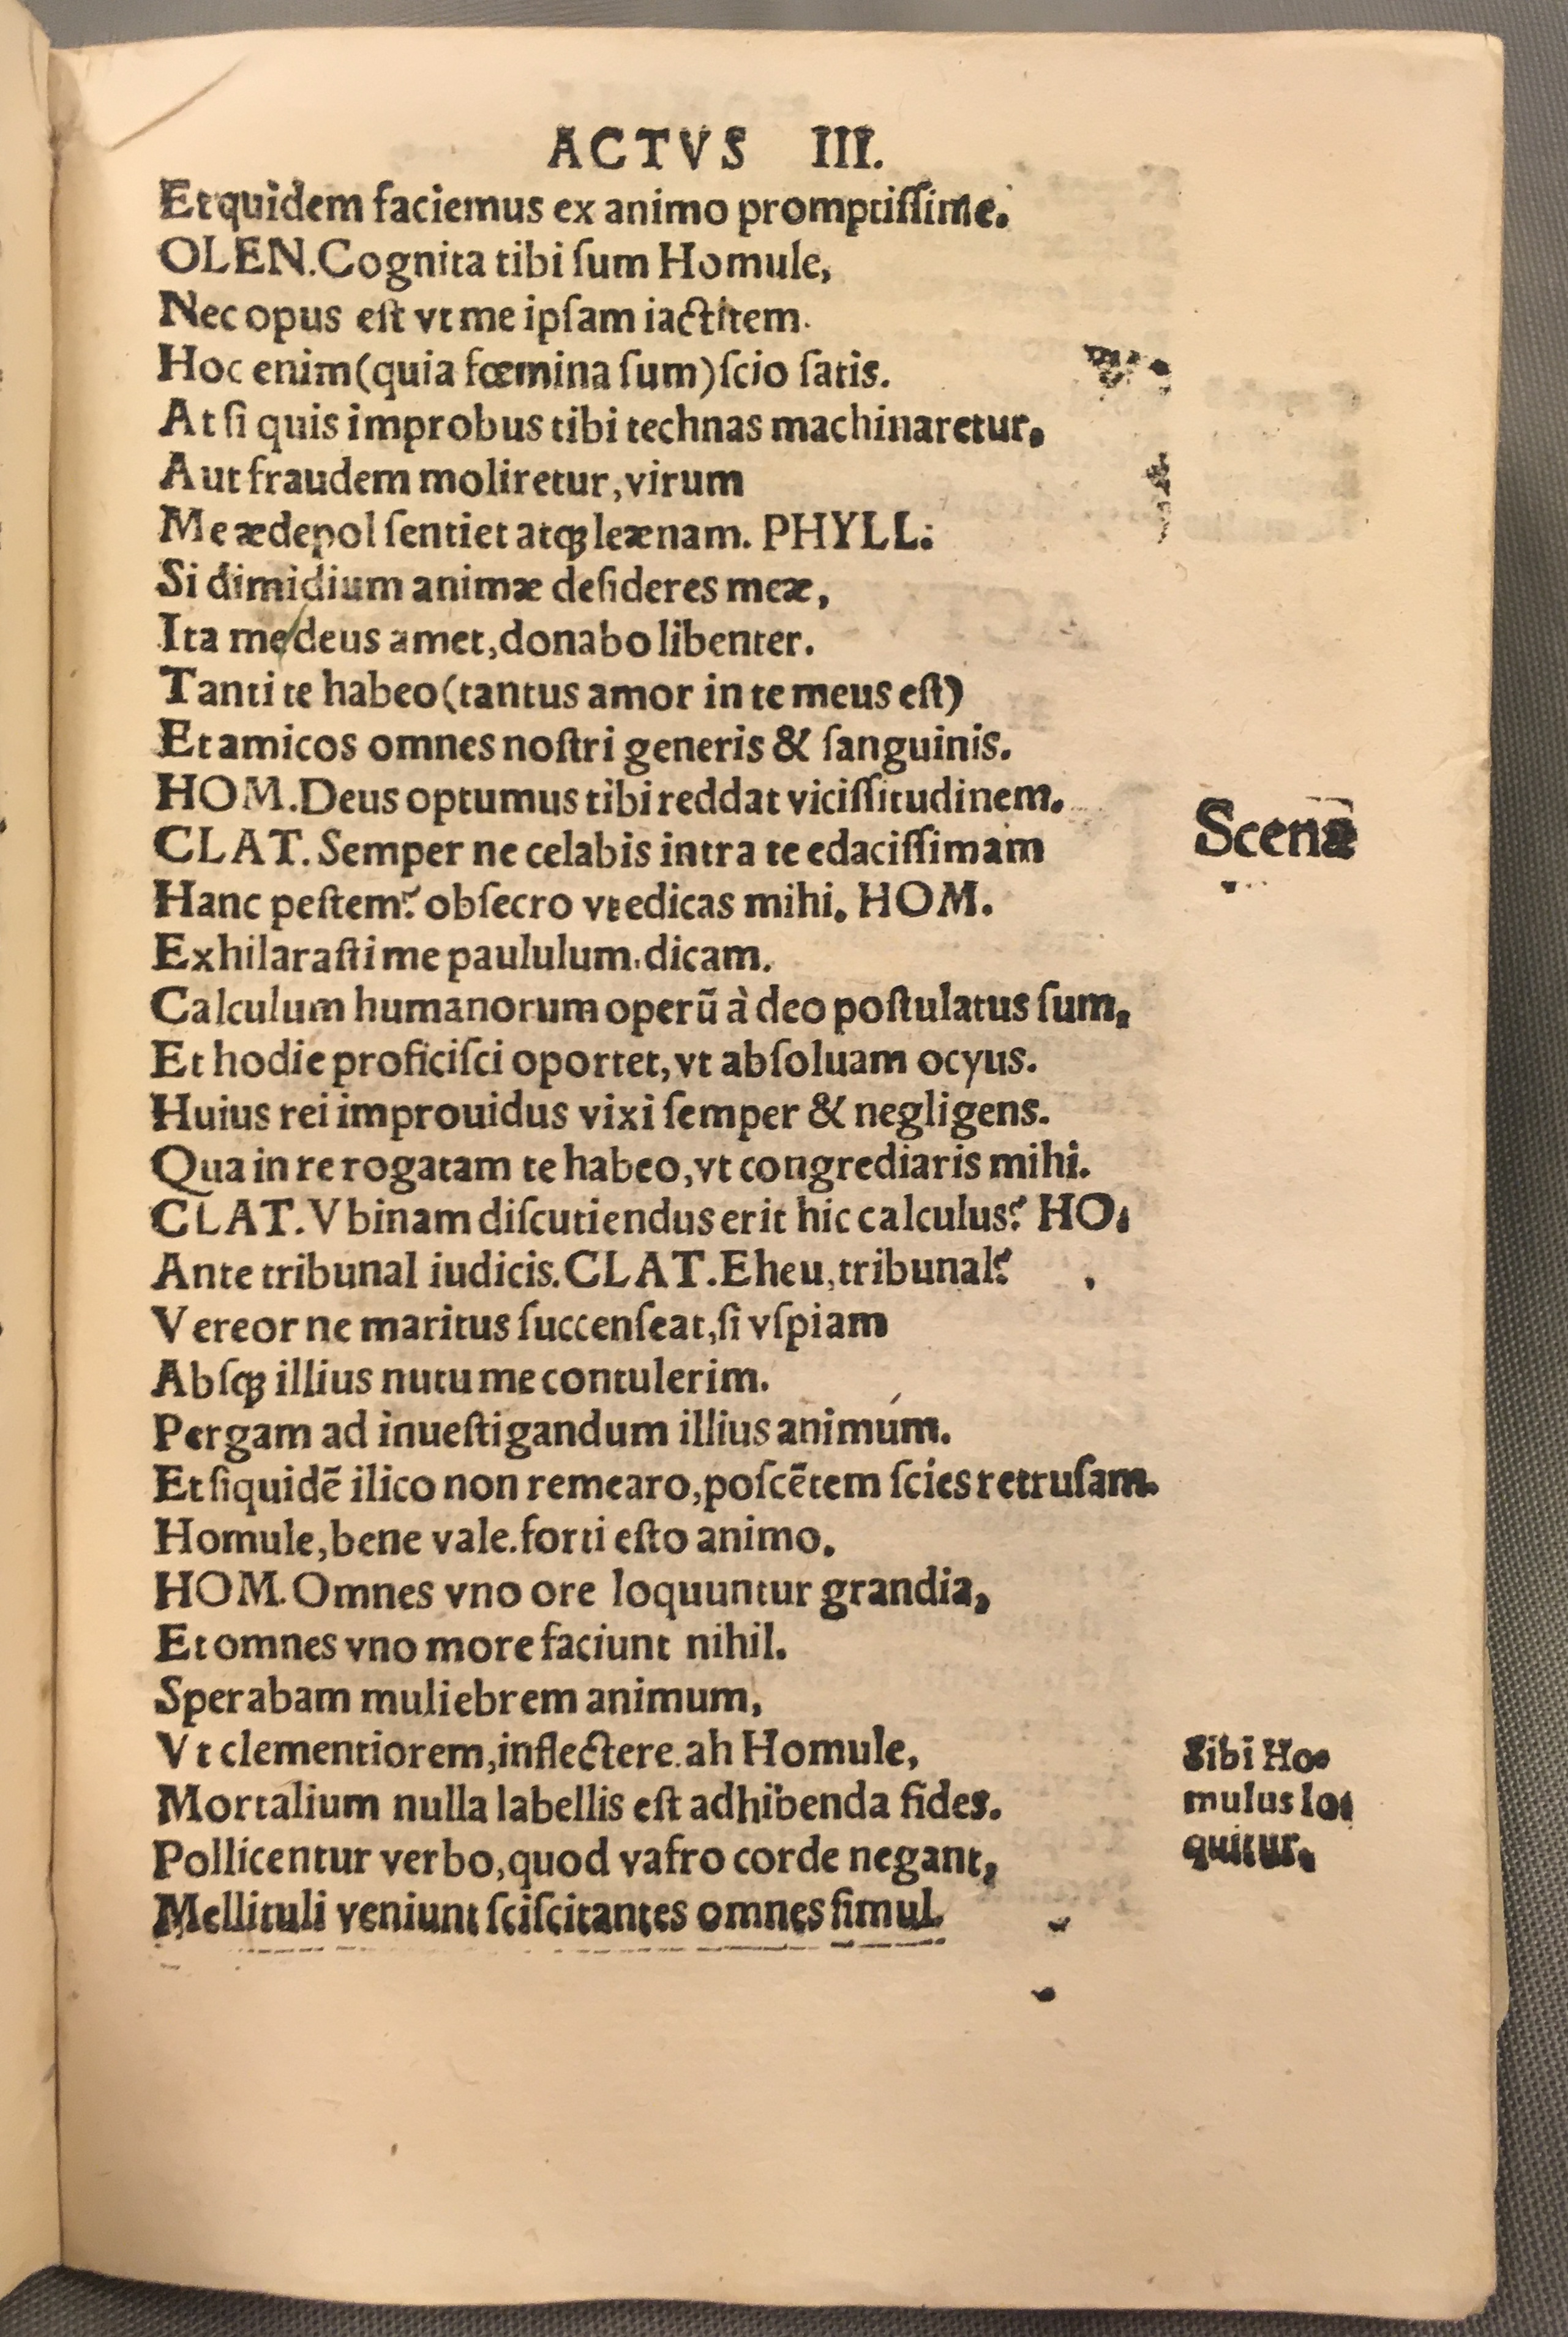 ACTVS III.
Et quidem faciemus ex animo promptiſſime.
OLEN. Cognita tibi ſum Homule,
Nec opus eſt vt me ipſam iactitem.
Hoc enim (quia fœmina ſum) ſcio ſatis.
At ſi quis improbus tibi technas machinaretur,
Aut fraudem moliretur, virum
Me ædepol ſentiet atqꝫ leænam. PHYLL:
Si dimidium animæ deſideres meæ,
Ita me deus amet, donabo libenter.
Tanti te habeo (tantus amor in te meus eſt)
Et amicos omnes noſtri generis & ſanguinis.
HOM. Deus optumus tibi reddat viciſſitudinem.
CLAT. Semper ne celabis intra te edaciſſimam
Scenæ
Hanc peſtem? obſecro vt edicas mihi. HOM.
Exhilaraſti me paululum. dicam.
Calculum humanorum operū à deo poſtulatus ſum,
Et hodie proficiſci oportet, vt abſoluam ocyus.
Huius rei improuidus vixi ſemper & negligens.
Qua in re rogatam te habeo, vt congrediaris mihi.
CLAT. Vbinam diſcutiendus erit hic calculus? HO.
Ante tribunal iudicis. CLAT. Eheu, tribunal?
Vereor ne maritus ſuccenſeat, ſi vſpiam
Abſqꝫ illius nutu me contulerim.
Pergam ad inueſtigandum illius animum.
Et ſiquidē ilico non remearo, poſcētem ſcies retruſam.
Homule, bene vale. forti eſto animo.
HOM. Omnes vno ore loquuntur grandia,
Et omnes vno more faciunt nihil.
Sperabam muliebrem animum,
Vt clementiorem, inflectere. ah Homule,
Mortalium nulla labellis eſt adhibenda fides.
Pollicentur verbo, quod vafro corde negant,
Mellituli veniunt ſciſcitantes omnes ſimul.
Sibi Ho-
mulus lo-
quitur.